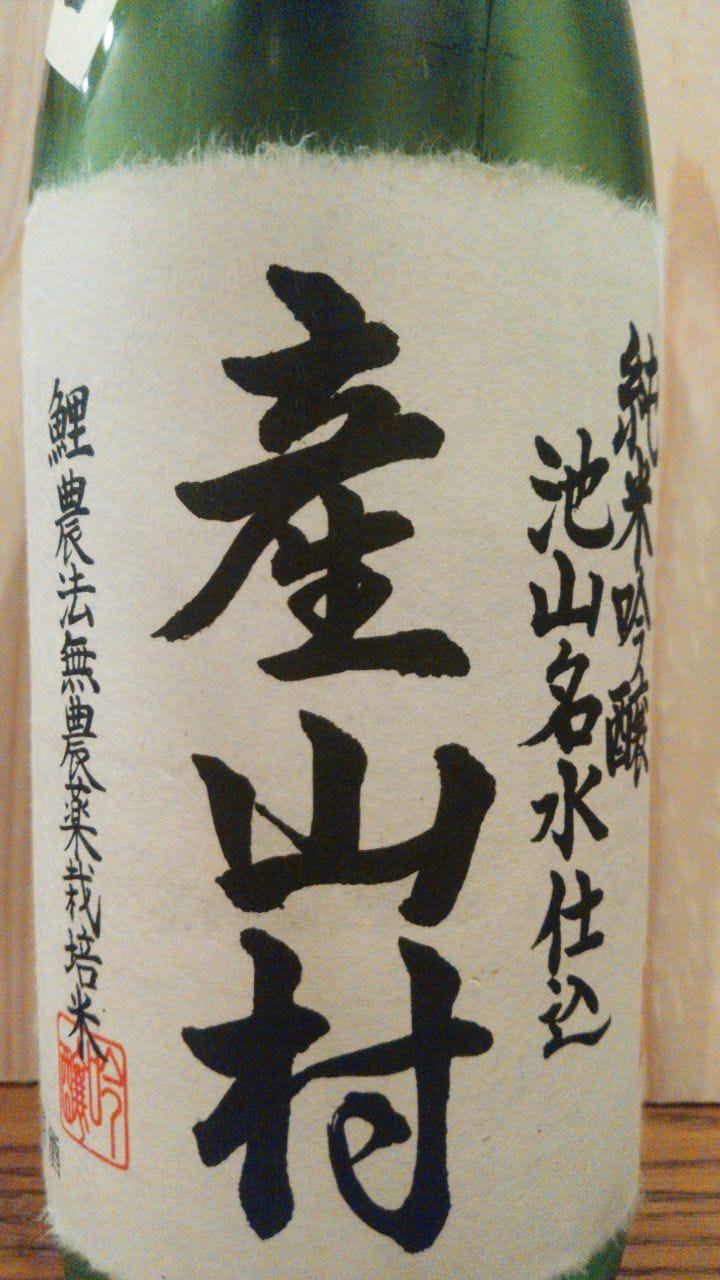 純米吟醸
池山名水仕込
産山村
鯉農法無農薬栽培米
吟醸